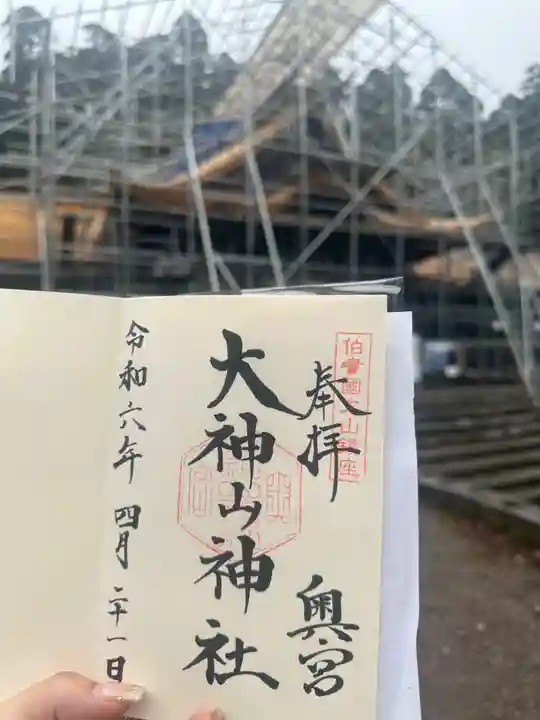 伯耆國大山鎮座
奉拝
奥宮
大神山神社
令和六年 四月 二十一日